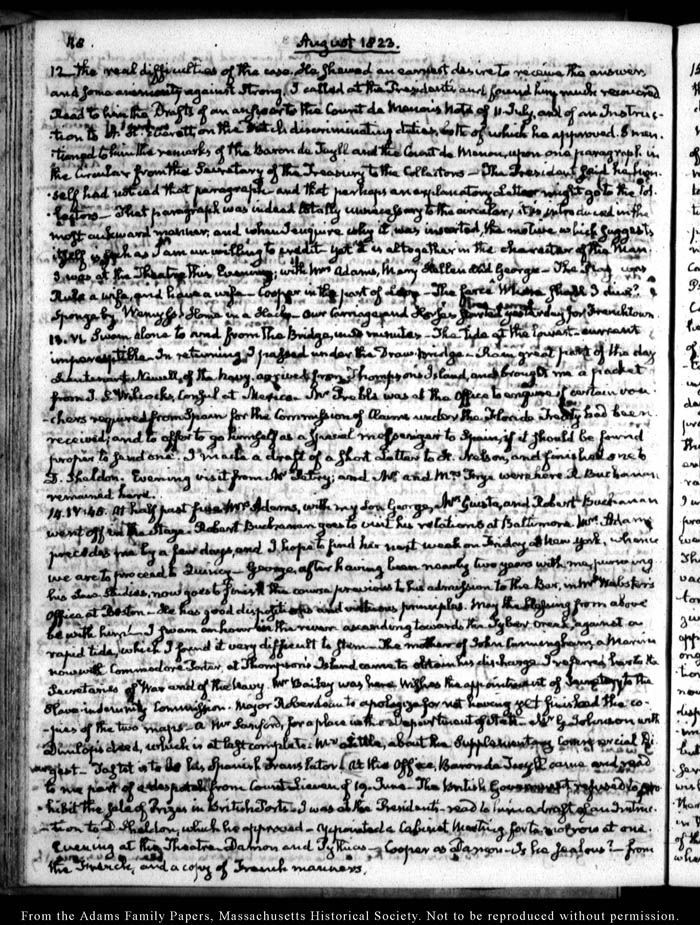 48. August 1823.
12— the real difficulties of the case. He shewed an earnest desire to receive the answers
and some animosity against Strong. I called at the President's and found him much recovered
Read to him the Drafts of an answer to the Count de Menou's Note of 11 July, and of an Instruc-
-tion to on the Dutch discriminating duties, both of which he approved. I men-
-tioned to him the remarks of the Baron de Tuyll and the Count de Menou, upon one paragraph in
the Circular from the Secretary of the Treasury to the Collectors — The President said he him-
self had noticed that paragraph and that perhaps an explanatory Letter might go to the Col-
lectors — That paragraph was indeed totally unnecessary to the circular, it is introduced in the
most awkward manner, and when I enquire why it was inserted, the motive which suggests
itself is such as I am unwilling to credit yet it is altogether in the character of the Man.
I was at the Theatre this Evening; with Mrs Adams, Mary Hellen and George — The Play was
Rule a wife, and have a wife — Cooper in the part of Leon — The farce Where shall I dine?
Sponge by Our Carriage and Horses yesterday for Frenchtown
13. VI. Swam alone to and from the Bridge, minutes. The tide at the lowest — current
imperceptible — In returning I passed under the Draw Bridge — Rain great part of the day
Lieutenant Newell, of the Navy, arrived from Thompson's Island, and brought me a packet
from J. S. Wilcocks, Consul at Mexico. Mr Preble was at the Office to enquire if certain vou-
-chers required from Spain for the Commission of Claims under the Florida Treaty had been
received; and to offer to go himself as a special messenger to Spain, if it should be found
proper to send one. I made a draft of a short Letter to H. Nelson, and finished one to
D. Sheldon. Evening visit from Mr Petry; and Mr and Mrs Frye were here R. Buchanan
remained here.
14. IV:45. At half past five Mrs Adams, with my Son George, and Robert Buchanan
went off in the Stage. Robert Buchanan goes to visit his relations at Baltimore Mrs Adams
precedes me by a few days, and I hope to find her next week on Friday at New York, whence
we are to proceed to Quincy — George, after having been nearly two years with me, pursuing
his Law Studies, now goes to finish the course previous to his admission to the Bar, in Mr Webster's
Office at Boston — He has good dispositions and virtuous principles. May the blessing from above
be with him! — I swam an hour in the river ascending towards the Tyber creek against a
rapid tide, which I found it very difficult to stem — The mother of John Cunningham, a Marine
now with Commodore Porter, at Thompson's Island came to obtain his discharge. I referred her to the
Secretaries of War and of the Navy. Mr Bailey was here Wishes the appointment of Secretary to the
Slave-indemnity Commission. Major Roberdeau to apologize for not having yet finished the co-
-pies of the two maps — a Mr Sanford, for a place in the Department of State — Mr G. Johnson with
Dunlop's deed, which is at last complete. about the Supplementary Commercial Di-
-gest — is to be his Spanish Translator. At the Office, Baron de Tuyll came and read
to me part of a despatch from Count Lieven of 19. June — The British Government refused to pro-
hibit the sale of Prizes in British Ports. I was at the President's — read to him a draft of an Instruc-
-tion to D. Sheldon, which he approved — appointed a Cabinet Meeting for tomorrow at one.
Evening at the Theatre. Damon and Pythias — Cooper as Damon — Is he Jealous? — from
the French, and a copy of French manners.
From the Adams Family Papers, Massachusetts Historical Society. Not to be reproduced without permission.